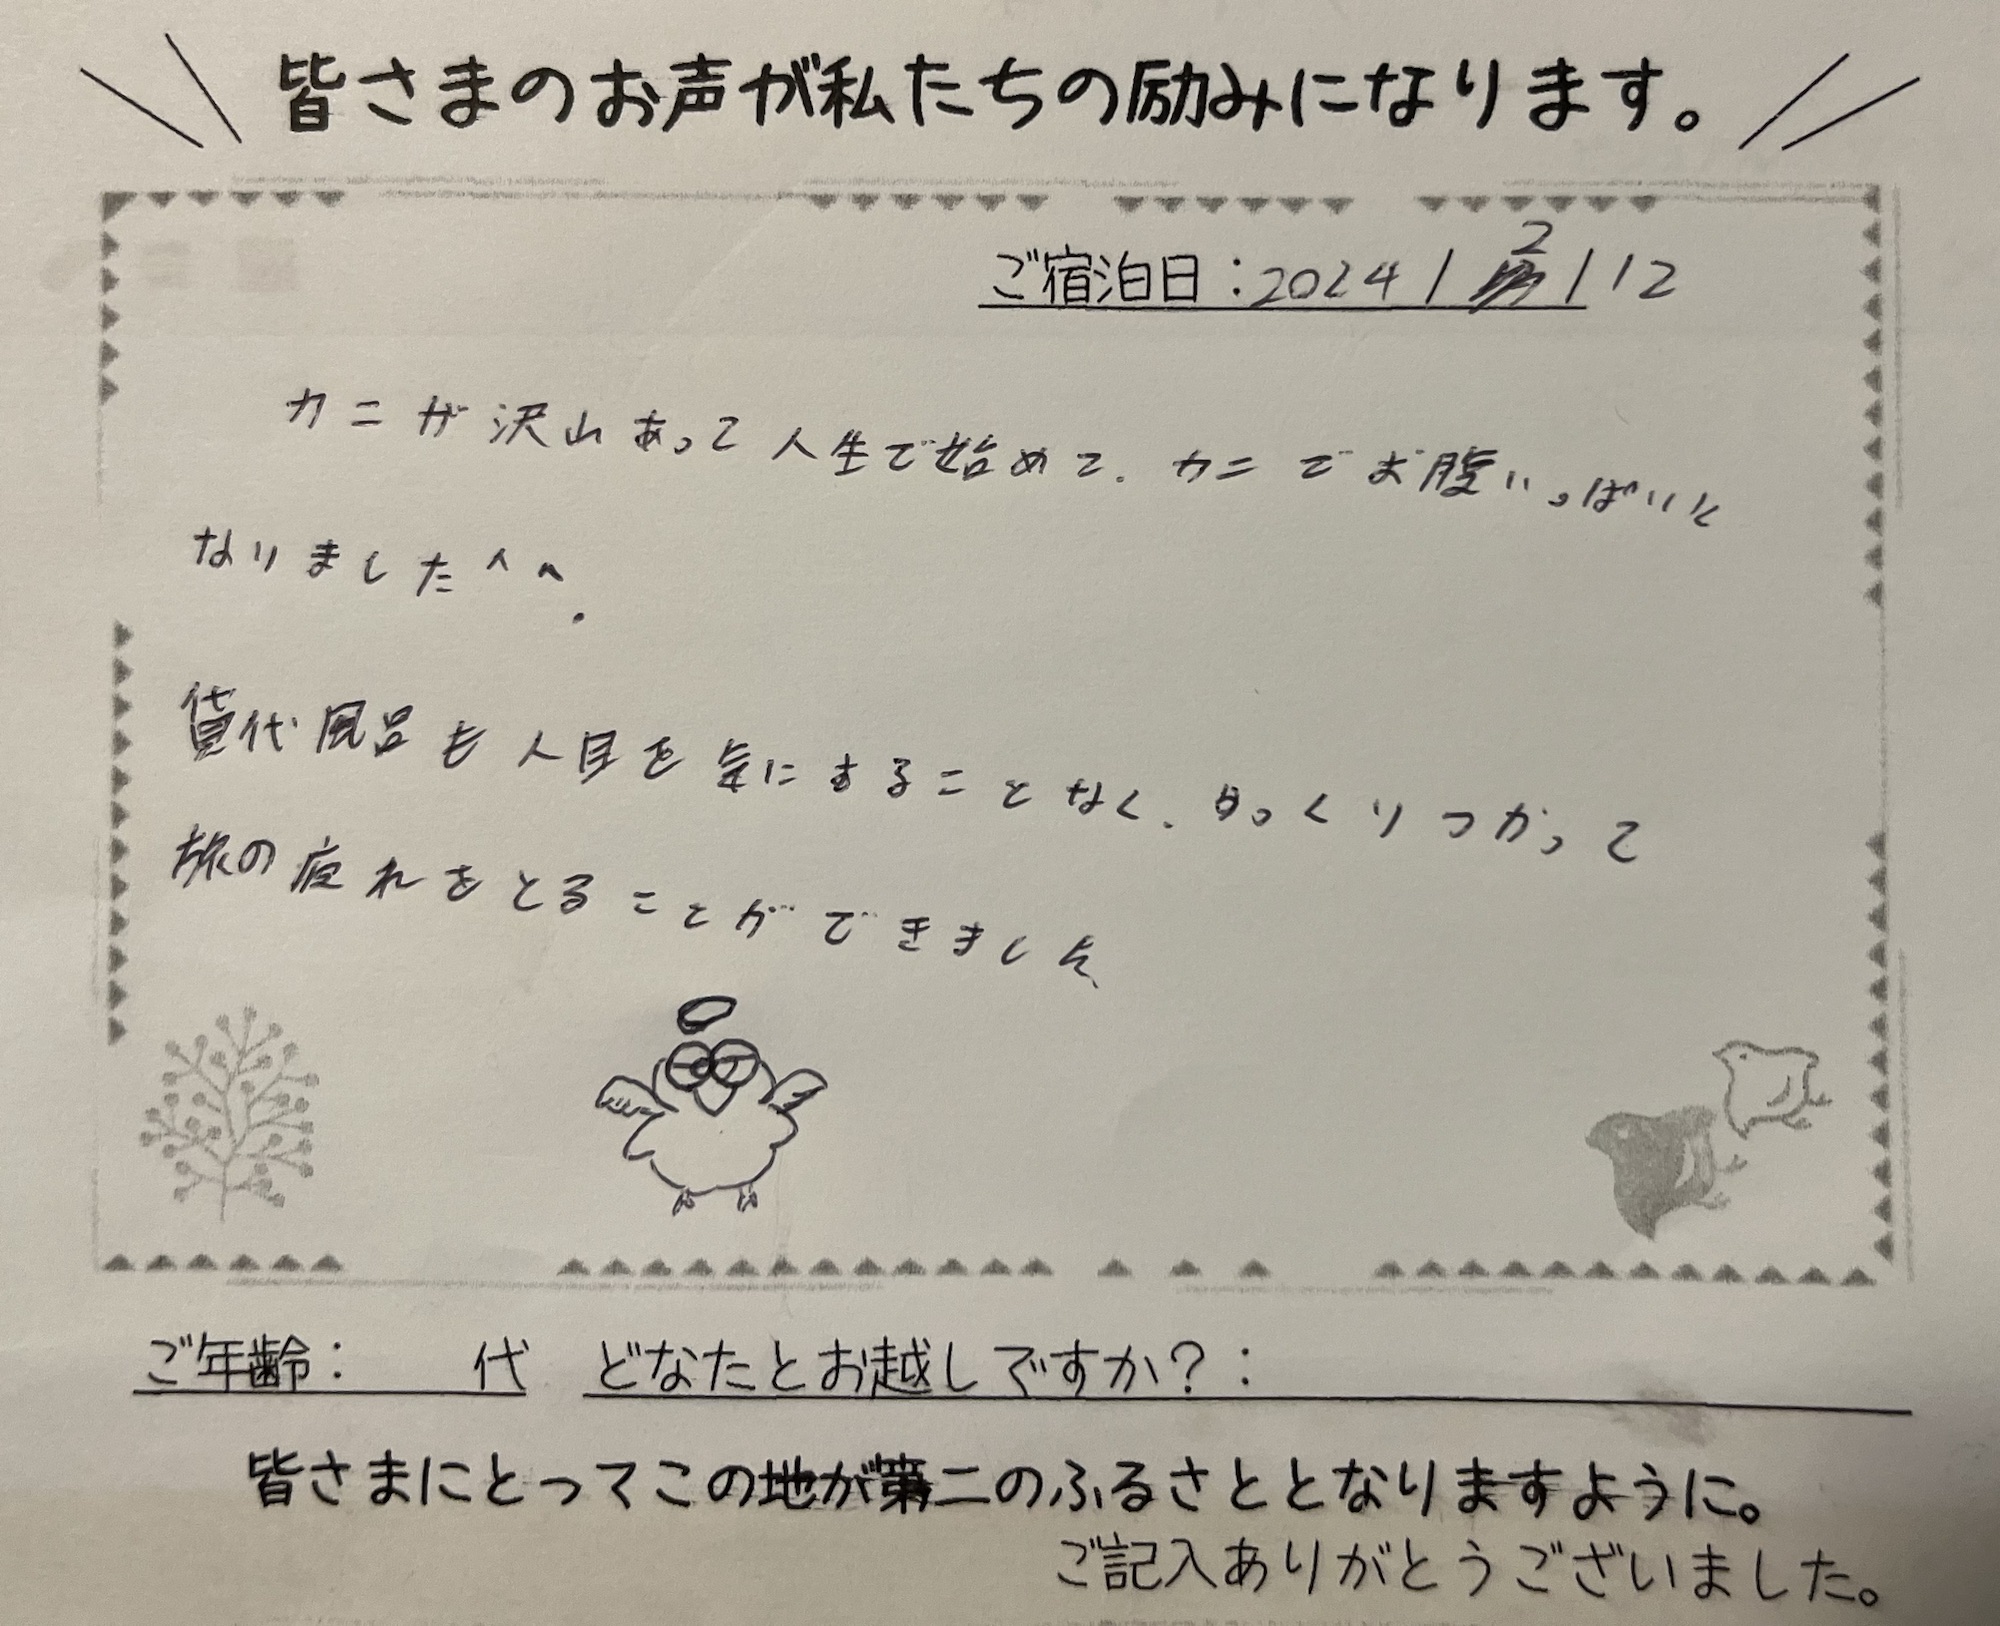 皆さまのお声が私たちの励みになります。
ご宿泊日：2024/2/12
カニが沢山あって人生で始めて、カニでお腹いっぱいに
なりました^^.
貸代風呂も人目を気にすることなく、ゆっくりつかって
旅の疲れをとることができました
ご年齢：　　代　どなたとお越しですか？：
皆さまにとってこの地が第二のふるさととなりますように。
ご記入ありがとうございました。